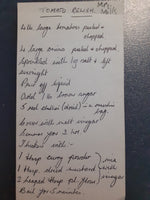 TOMATO RELISH
4 lbs large tomatoes peeled &
chopped
4 large onions peeled & chopped
Sprinkled with salt &
left
overnight
Pour off liquid
Add 1 lb brown sugar
3 red chilies (dried)
Cover with malt vinegar
Simmer for 2 hrs
Thicken with:-
1 tbsp curry powder
1 tbsp dried mustard
2 heaped tbsp pl. flour
mix
with
vinegar
Boil for 5 minutes